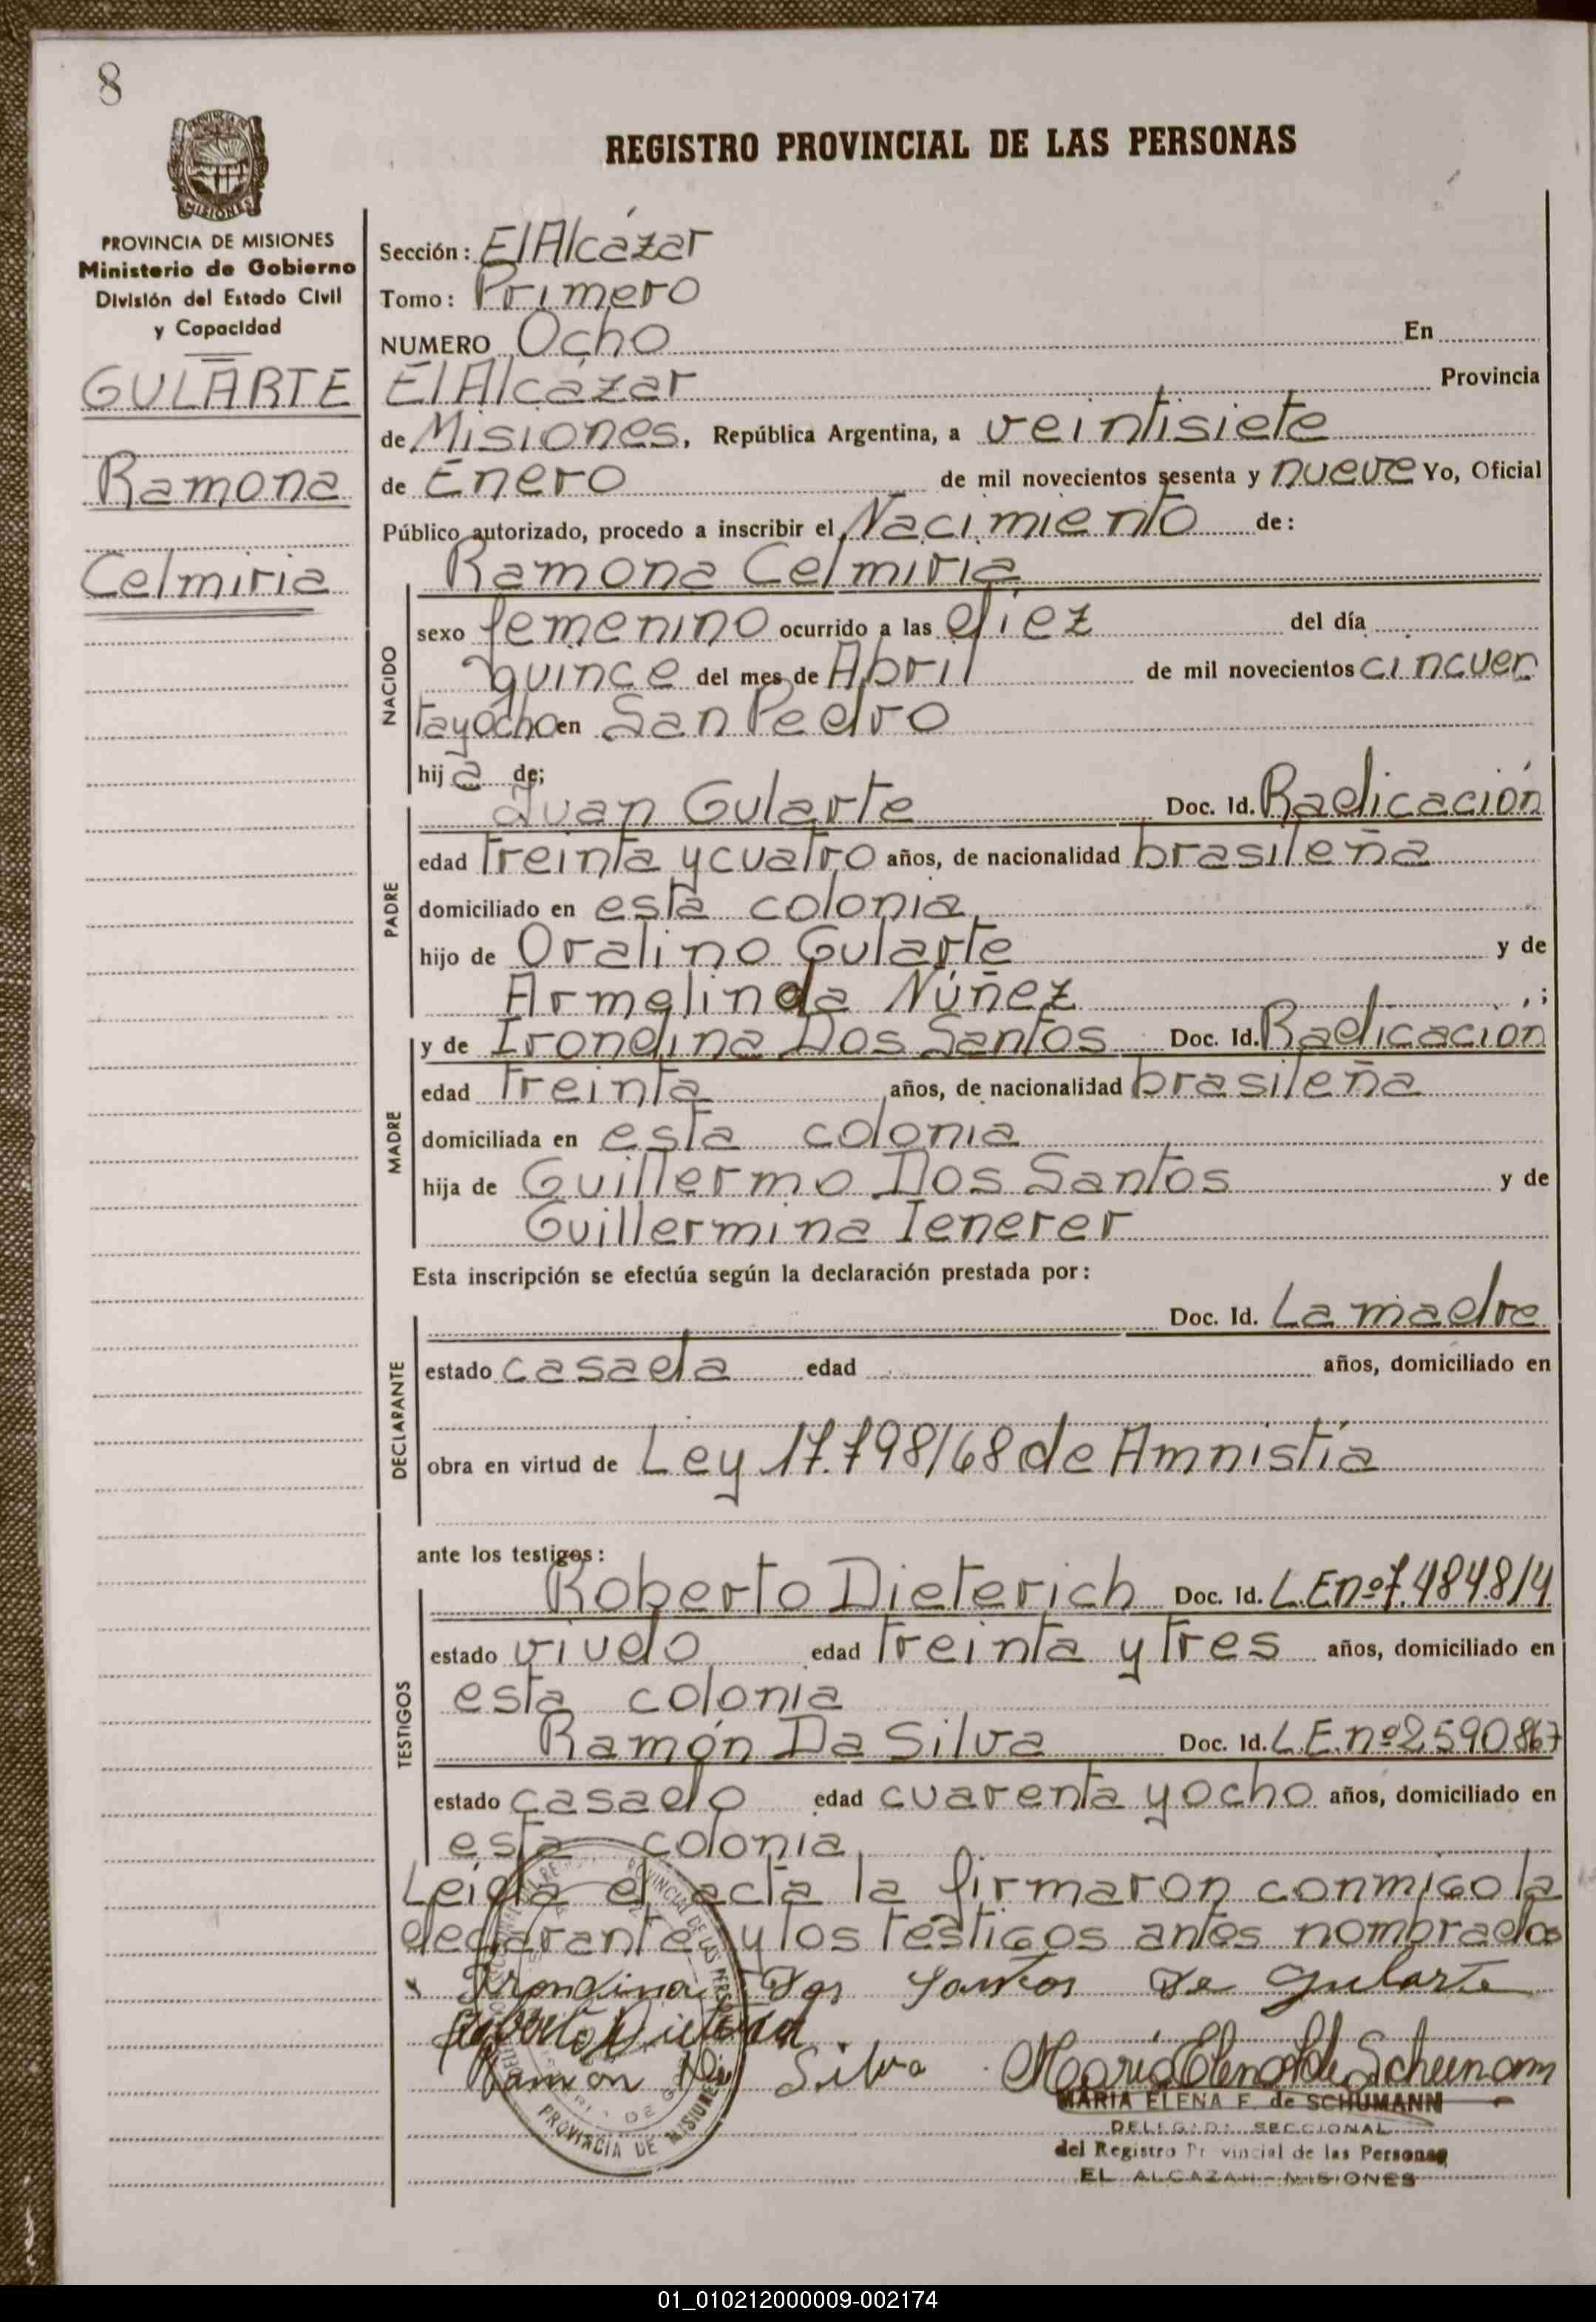 8
PROVINCIA DE
MISIONES
REGISTRO PROVINCIAL DE LAS PERSONAS
PROVINCIA DE MISIONES
Ministerio de Gobierno
División del Estado Civil
y Capacidad
GULARTE
Ramona
Celmiria
Sección: El Alcázar
Tomo: Primero
NUMERO Ocho En
El Alcázar Provincia
de Misiones, República Argentina, a veintisiete
de Enero de mil novecientos sesenta y nueve Yo, Oficial
Público autorizado, procedo a inscribir el Nacimiento de:
NACIDO
Ramona Celmiria
sexo femenino ocurrido a las diez del día
quince del mes de Abril de mil novecientos cincuen
tayocho en San Pedro
hija de;
PADRE
Juan Gularte Doc. Id. Radicación
edad treinta y cuatro años, de nacionalidad brasileña
domiciliado en esta colonia
hijo de Oralino Gularte y de
Armelinda Núñez , ;
MADRE
y de Irondina Dos Santos Doc. Id. Radicación
edad treinta años, de nacionalidad brasileña
domiciliada en esta colonia
hija de Guillermo Dos Santos y de
Guillermina Ienerer
Esta inscripción se efectúa según la declaración prestada por:
DECLARANTE
Doc. Id. La madre
estado casada edad años, domiciliado en
obra en virtud de Ley 17.798/68 de Amnistía
ante los testigos:
TESTIGOS
Roberto Dieterich Doc. Id. L.E nº 7.484.814
estado viudo edad treinta y tres años, domiciliado en
esta colonia
Ramón Da Silva Doc. Id. L.E. nº 2590867
estado casado edad cuarenta y ocho años, domiciliado en
esta colonia
Leída el acta la firmaron conmigo la
declarante y los testigos antes nombrados
Irondina Dos Santos De Gularte
Roberto Dieterich
Ramon Da Silva
María Elena F. de Schumann
MARIA ELENA F. de SCHUMANN
DELEGADA SECCIONAL
del Registro Provincial de las Personas
EL ALCAZAR - MISIONES
PROVINCIAL DE LAS PERSONAS
PROVINCIA DE MISIONES
01_010212000009-002174